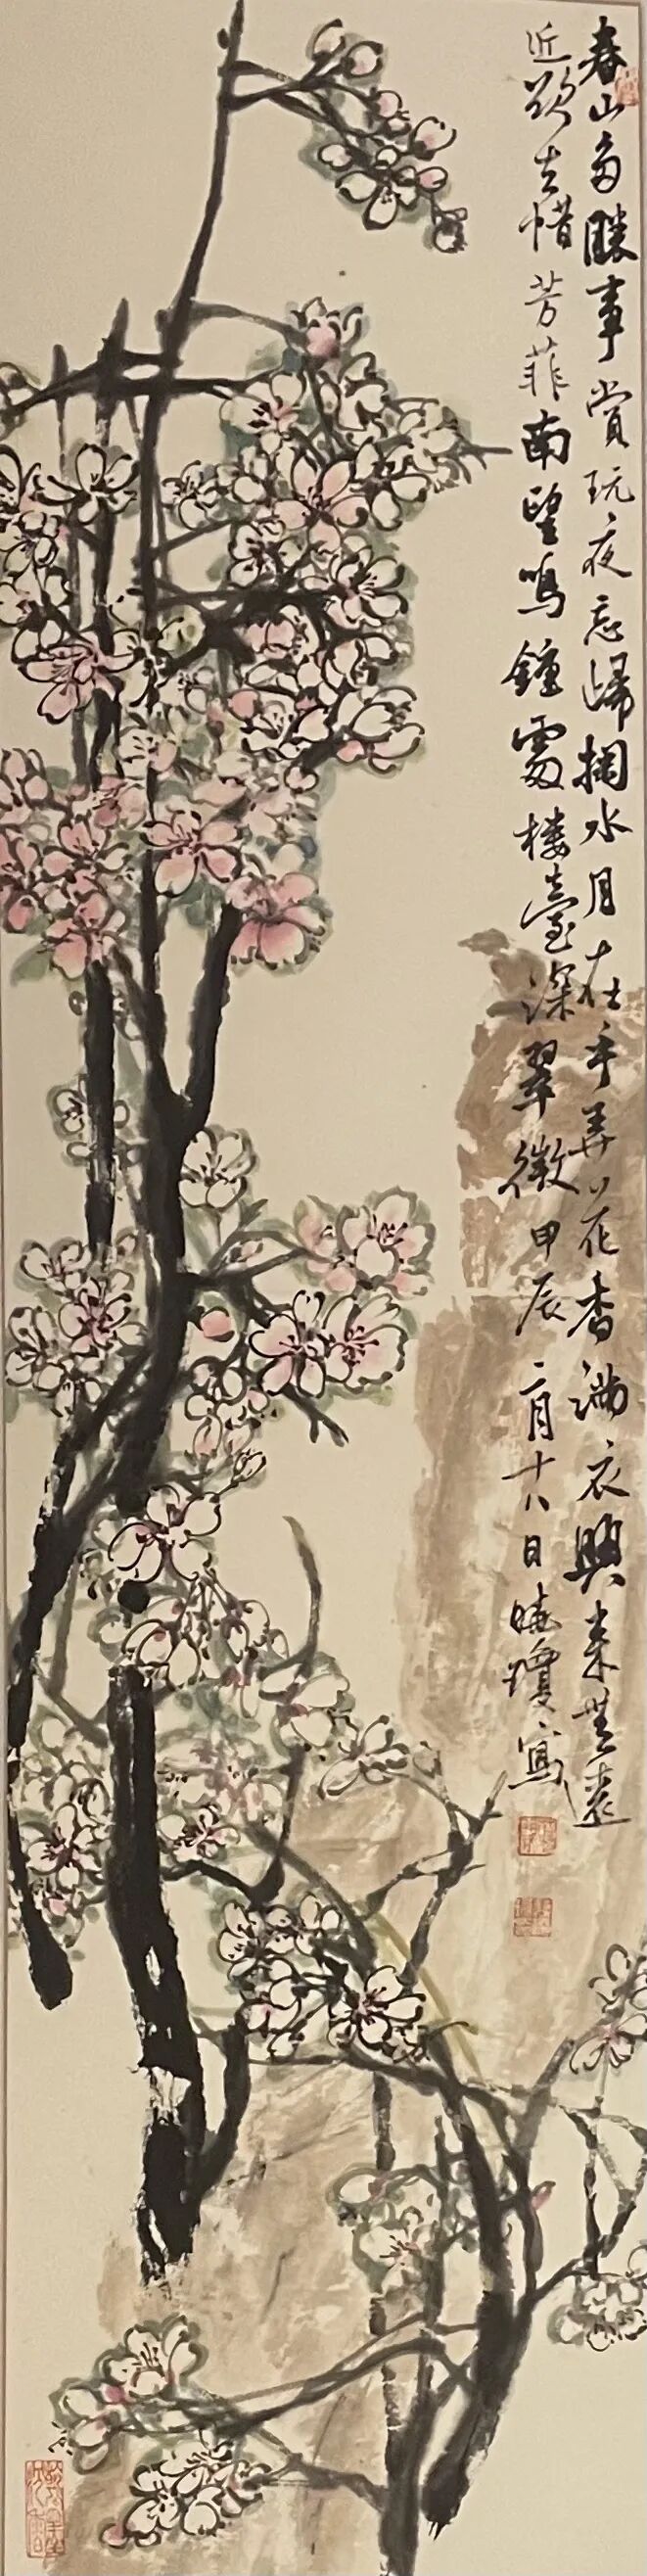 春山多勝事賞玩夜忘歸掬水月在手弄花香滿衣興來無遠
近欲去惜芳菲南望鳴鐘處樓臺深翠微甲辰二月十八日曉瓊寫